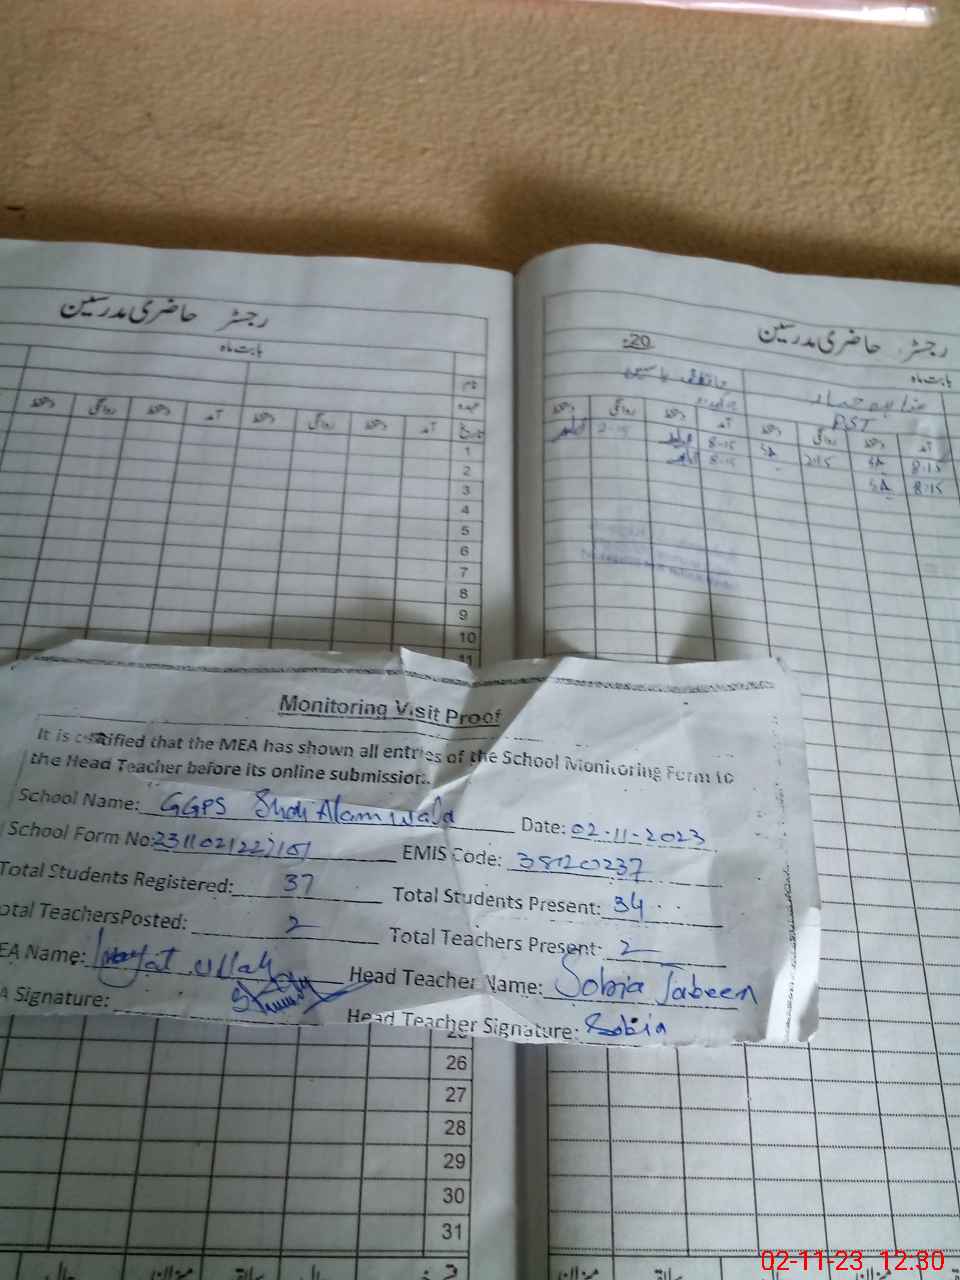 رجسٹر حاضری مدرسین
بابت ماہ
نام
عہدہ
تاریخ آمد دستخط روانگی دستخط آمد دستخط روانگی دستخط
1
2
3
4
5
6
7
8
9
10
11
رجسٹر حاضری مدرسین
بابت ماہ 20
PST
آمد دستخط روانگی دستخط آمد دستخط روانگی دستخط
8-15 SA 2:15 SA 8-15 2-15
8:15 SA 8-15
Monitoring Visit Proof
It is certified that the MEA has shown all entries of the School Monitoring Form to
the Head Teacher before its online submission.
School Name: GGPS Shah Alam wala Date: 02-11-2023
School Form No: EMIS Code: 38120237
Total Students Registered: 37 Total Students Present: 34
otal TeachersPosted: 2 Total Teachers Present: 2
EA Name: Inayat ullah Head Teacher Name: Sobia Jabeen
A Signature: Head Teacher Signature: Sobia
25
26
27
28
29
30
31
02-11-23 12:30